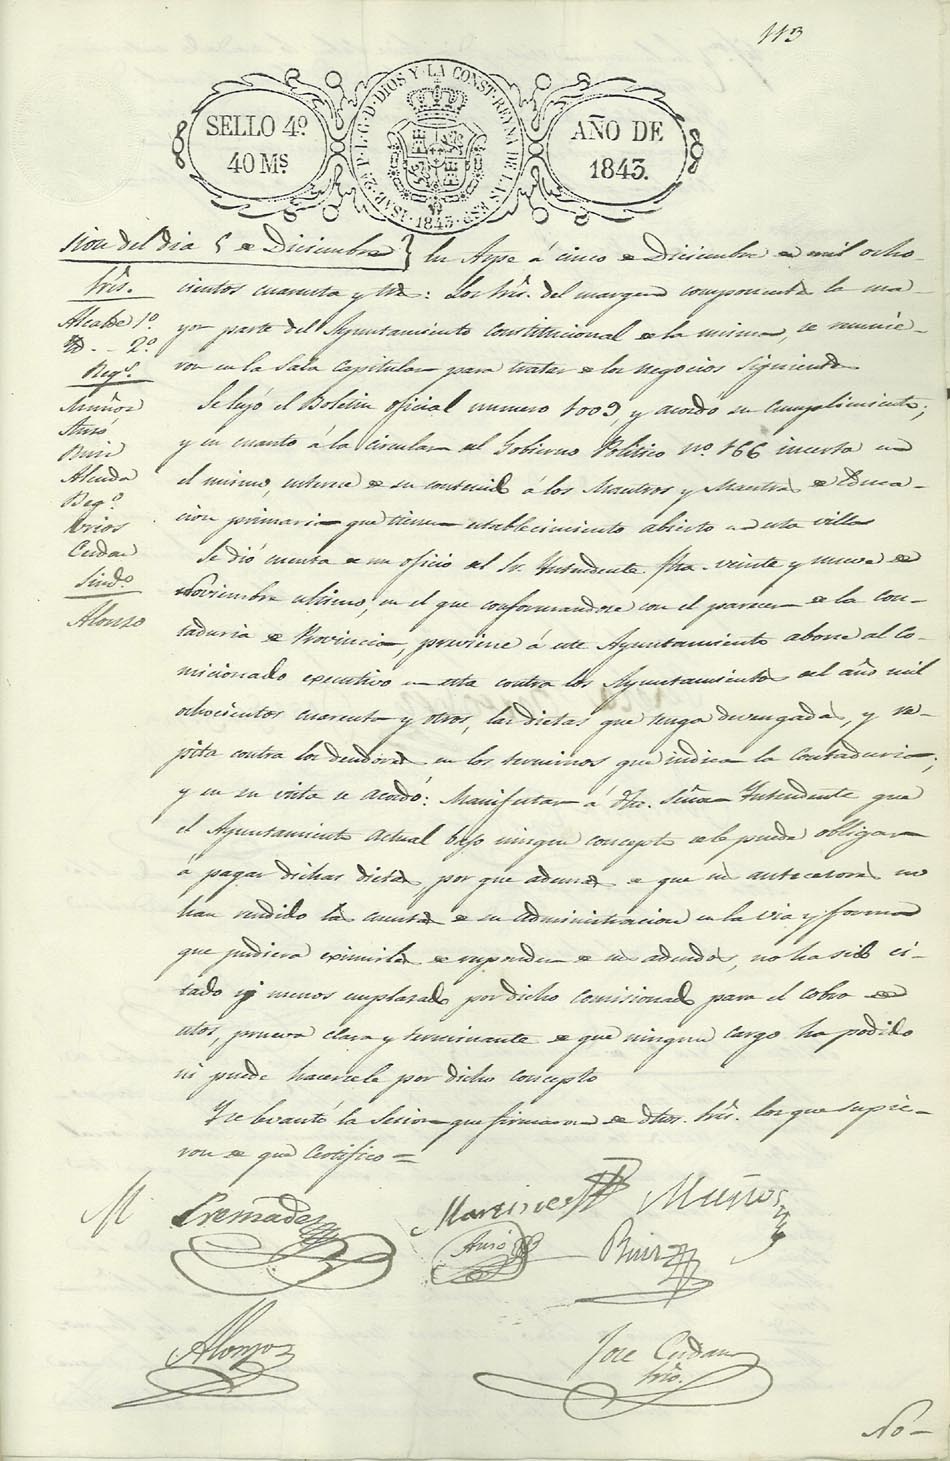 113
SELLO 4º
40 Mˢ.
ISAB. 2ª P. L. G. D. DIOS Y LA CONST. REYNA DE LAS ESP. 1843
AÑO DE
1843.
sion del dia 5 de Diciembre } En Aspe á cinco de Diciembre de mil ocho-
Srês.
cientos cuarenta y tres: Los Srês. del margen componentes la ma-
Alcalde 1º.
yor parte del Ayuntamiento Constitucional de la misma, se reunie-
Id. 2º.
ron en la Sala Capitular para tratar de los negocios siguientes
Regˢ.
Muñoz
Se leyó el Boletin oficial numero 1009, y acordo su cumplimiento;
y en cuanto á la circular del Gobierno Politico nº. 166 inserta en
Ruiz
el mismo, enterese de su contenido á los Maestros y Maestras de Educa-
Alcuda
cion primaria que tienen establecimiento abierto en esta villa
Cerdan
Se dió cuenta de un oficio del Sr. Intendente fha. veinte y nueve de
Sindº
Noviembre ultimo, en el que conformandose con el parecer de la Con-
Alonzo
taduria de Provincia, previene á este Ayuntamiento abone al Co-
micionado executivo en esta contra los Ayuntamientos del año mil
ochocientos cuarenta y otros, las dietas que tenga devengadas, y re-
pita contra los deudores en los terminos que indica la Contaduria;
y en su vista se acordó: Manifestar á dho. Señor Intendente que
el Ayuntamiento actual bajo ningun concepto se le puede obligar
á pagar dichas dietas por que ademas de que sus antecesores no
han rendido las cuentas de su administracion en la via y forma
que pudiera eximirles de responder de sus adeudos, no ha sido ci-
tado ni menos emplazado por dicho comisionado para el cobro de
ellos, prueva clara y terminante de que ningun cargo ha podido
ni puede hacersele por dicho concepto
Y se levantó la Sesion que firmaron de dhos. Srês. los que supie-
ron de que Certifico =
M Cremades Martinez Muñoz
Ruiz
Alonzo
Jose Cerdan
Srio.
No-